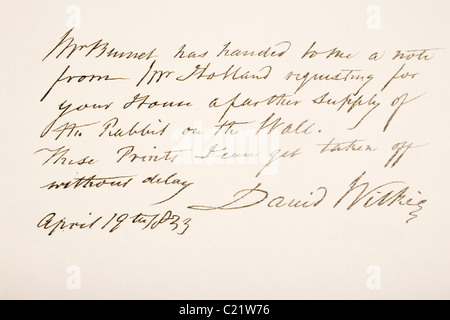 Mr Burnet has handed to me a note
from Mr Holland requesting for
your House a farther supply of
the Rabbit on the Wall.
These Prints I can get taken off
without delay
David Wilkie
April 19th 1833
alamy
Image ID: C21W76
www.alamy.com